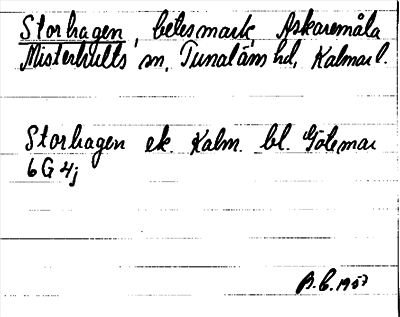 Storhagen, betesmark, Askaremåla
Misterhults sn, Tunaläns hd, Kalmar l.
Storhagen ek. Kalm. bl. Götemar
6G 4j
B.C. 1957